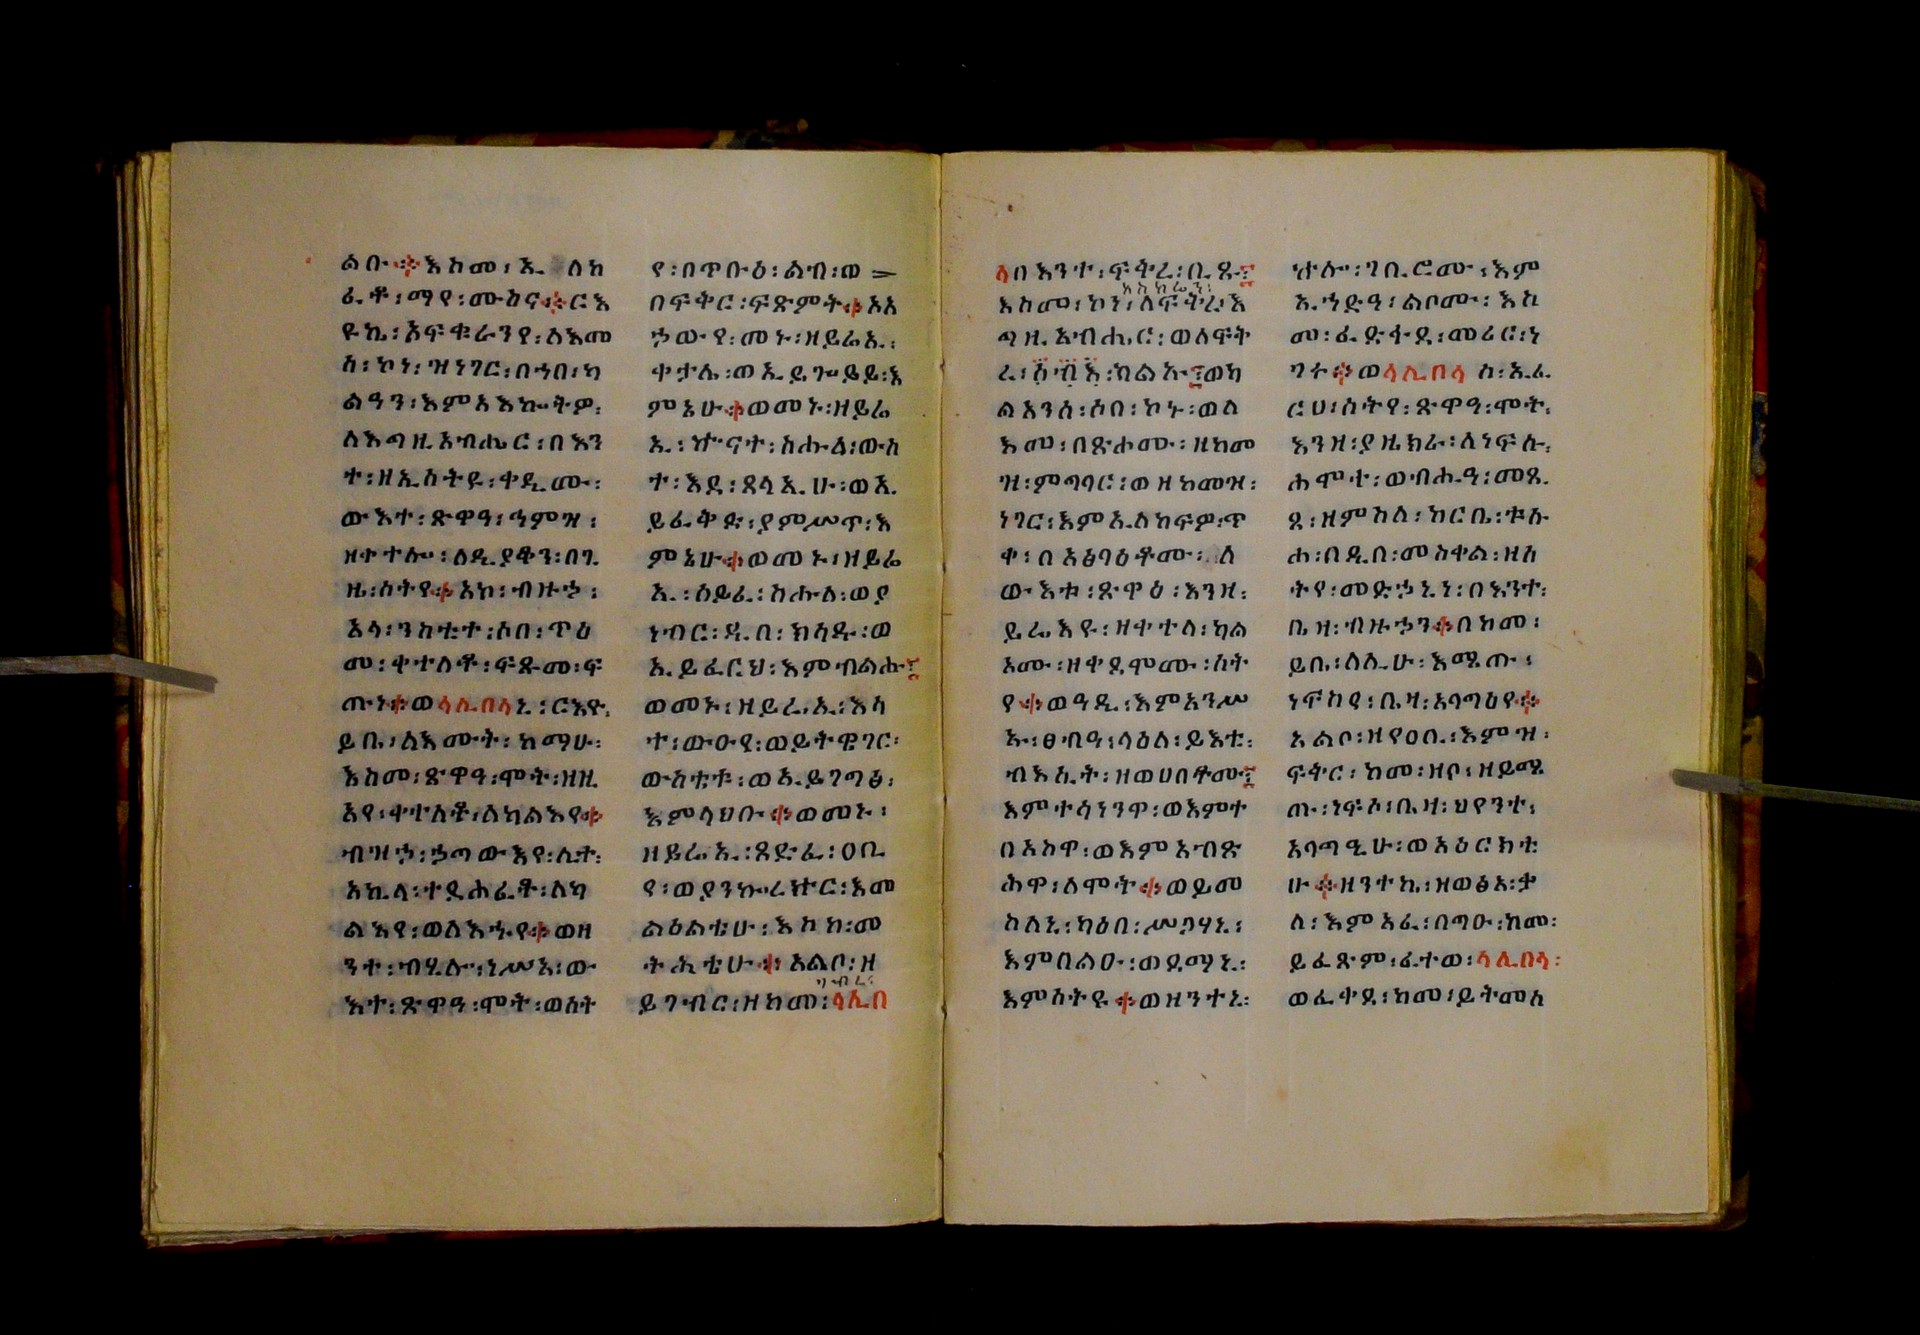 ልቡ፨እስመ፡ኢ ሰከ
ፈቶ፡ማየ፡ሙስና፨ርእ
ዩኬ፡አፍቁራንየ፡ለእመ
ሰ፡ኮነ፡ዝነገር፡በኀበ፡ካ
ልዓን፡እምአእኵትዎ፡
ለእግዚአብሔር፡በእን
ተ፡ዘኢስትዩ፡ቀዲሙ፡
ውእተ፡ጽዋዓ፡ኀምዝ፡
ዘቀተሎ፡ለዲያቆን፡በጊ
ዜ፡ሰትየ፨አኮ፡ብዙኃ፡
አላ፡ንስቲተ፡ሶበ፡ጥዕ
መ፡ቀተለቶ፡ፍጹመ፡ፍ
ጡነ፨ወላሊበላኒ፡ርእዮ፡
ይቤ፡ለእሙት፡ከማሁ፡
እስመ፡ጽዋዓ፡ሞት፡ዘዚ
አየ፡ቀተለቶ፡ለካልእየ፨
ብዝኃ፡ኃጣውእየ፡ሊተ፡
አኪላ፡ተደሐፈቶ፡ለካ
ልእየ፡ወለእኁየ፨ወዘ
ንተ፡ብሂሎ፡ነሥአ፡ው
እተ፡ጽዋዓ፡ሞት፡ወሰት
የ፡በጥቡዕ፡ልብ፡ወ
በፍቅር፡ፍጽምት፨አአ
ኃውየ፡መኑ፡ዘይሬኢ፡
ቀታሌ፡ወኢይጐይይ፡እ
ምኔሁ፨ወመኑ፡ዘይሬ
ኢ፡ኵናተ፡ስሑለ፡ውስ
ተ፡እደ፡ጸላኢሁ፡ወኢ
ይፈቅድ፡ያምሥጥ፡እ
ምኔሁ፨ወመኑ፡ዘይሬ
ኢ፡ሰይፈ፡ስሑለ፡ወያ
ነብር፡ዲበ፡ክሳዱ፡ወ
ኢይፈርህ፡እምብልሑ፤
ወመኑ፡ዘይሬኢ፡እሳ
ተ፡ውዑየ፡ወይትዌገር፡
ውስቴቱ፡ወኢይገጣፅ፡
እምላህቡ፨ወመኑ፡
ዘይሬኢ፡ጸድፈ፡ዐቢ
የ፡ወያንኰረኵር፡እመ
ልዕልቴሁ፡እስከ፡መ
ትሕቴሁ፨አልቦ፡ዘ
ገብረ፡
ይገብር፡ዘከመ፡ላሊበ
ላበእንተ፡ፍቅረ፡ቢጹ፤
አስክሬን፡
እስመ፡ኮነ፡ለፍቅረ፡እ
ግዚአብሔር፡ወለፍት
ረ፡ሰብእ፡ካልኡ፤ወካ
ልአንሰ፡ሶበ፡ኮኑ፡ወለ
እመ፡በጽሖሙ፡ዘከመ
ዝ፡ምግባር፡ወዘከመዝ፡
ነገር፡እምኢሰከፍዎ፡ጥ
ቀ፡በአፅባዕቶሙ፡ለ
ውእቱ፡ጽዋዕ፡እንዘ፡
ይሬእዩ፡ዘቀተለ፡ካል
አሙ፡ዘቀደሞሙ፡ሰት
የ፨ወዓዲ፡እምአንሥ
ኡ፡ፀብዓ፡ላዕለ፡ይእቲ፡
ብእሲት፡ዘወሀበቶሙ፤
እምተሳነንዋ፡ወእምተ
በአስዋ፡ወእምአብጽ
ሕዋ፡ለሞት፨ወይመ
ስለኒ፡ካዕበ፡ሥጋሃኒ፡
እምበልዑ፡ወደማኒ፡
እምሰትዩ፨ወዘንተኒ፡
ኵሎ፡ገቢሮሙ፡እም
ኢኀድዓ፡ልቦሙ፡እስ
መ፡ፈድፋደ፡መሪር፡ነ
ገሩ፨ወላሊበላ ሰ፡ኢፈ
ርሀ፡ሰትየ፡ጽዋዓ፡ሞት፡
እንዘ፡ያዜክራ፡ለነፍሱ፡
ሕሞተ፡ወብሒዓ፡መጺ
ጸ፡ዘምስለ፡ከርቤ፡ቱሱ
ሐ፡በዲበ፡መስቀል፡ዘሰ
ትየ፡መድኃኒነ፡በእንተ፡
ቤዛ፡ብዙኃን፨በከመ፡
ይቤ፡ለሊሁ፡እሜጡ፡
ነፍስየ፡ቤዛ፡አባግዕየ፨
አልቦ፡ዘየዐቢ፡እምዝ፡
ፍቅር፡ከመ፡ዘቦ፡ዘይሜ
ጡ፡ነፍሶ፡ቤዛ፡ህየንተ፡
አባግዒሁ፡ወአዕርክቲ
ሁ፨ዘንተኬ፡ዘወፅአ፡ቃ
ለ፡እምአፈ፡በግዑ፡ከመ፡
ይፈጽም፡ፈተወ፡ላሊበላ፡
ወፈቀደ፡ከመ፡ይትመሰ